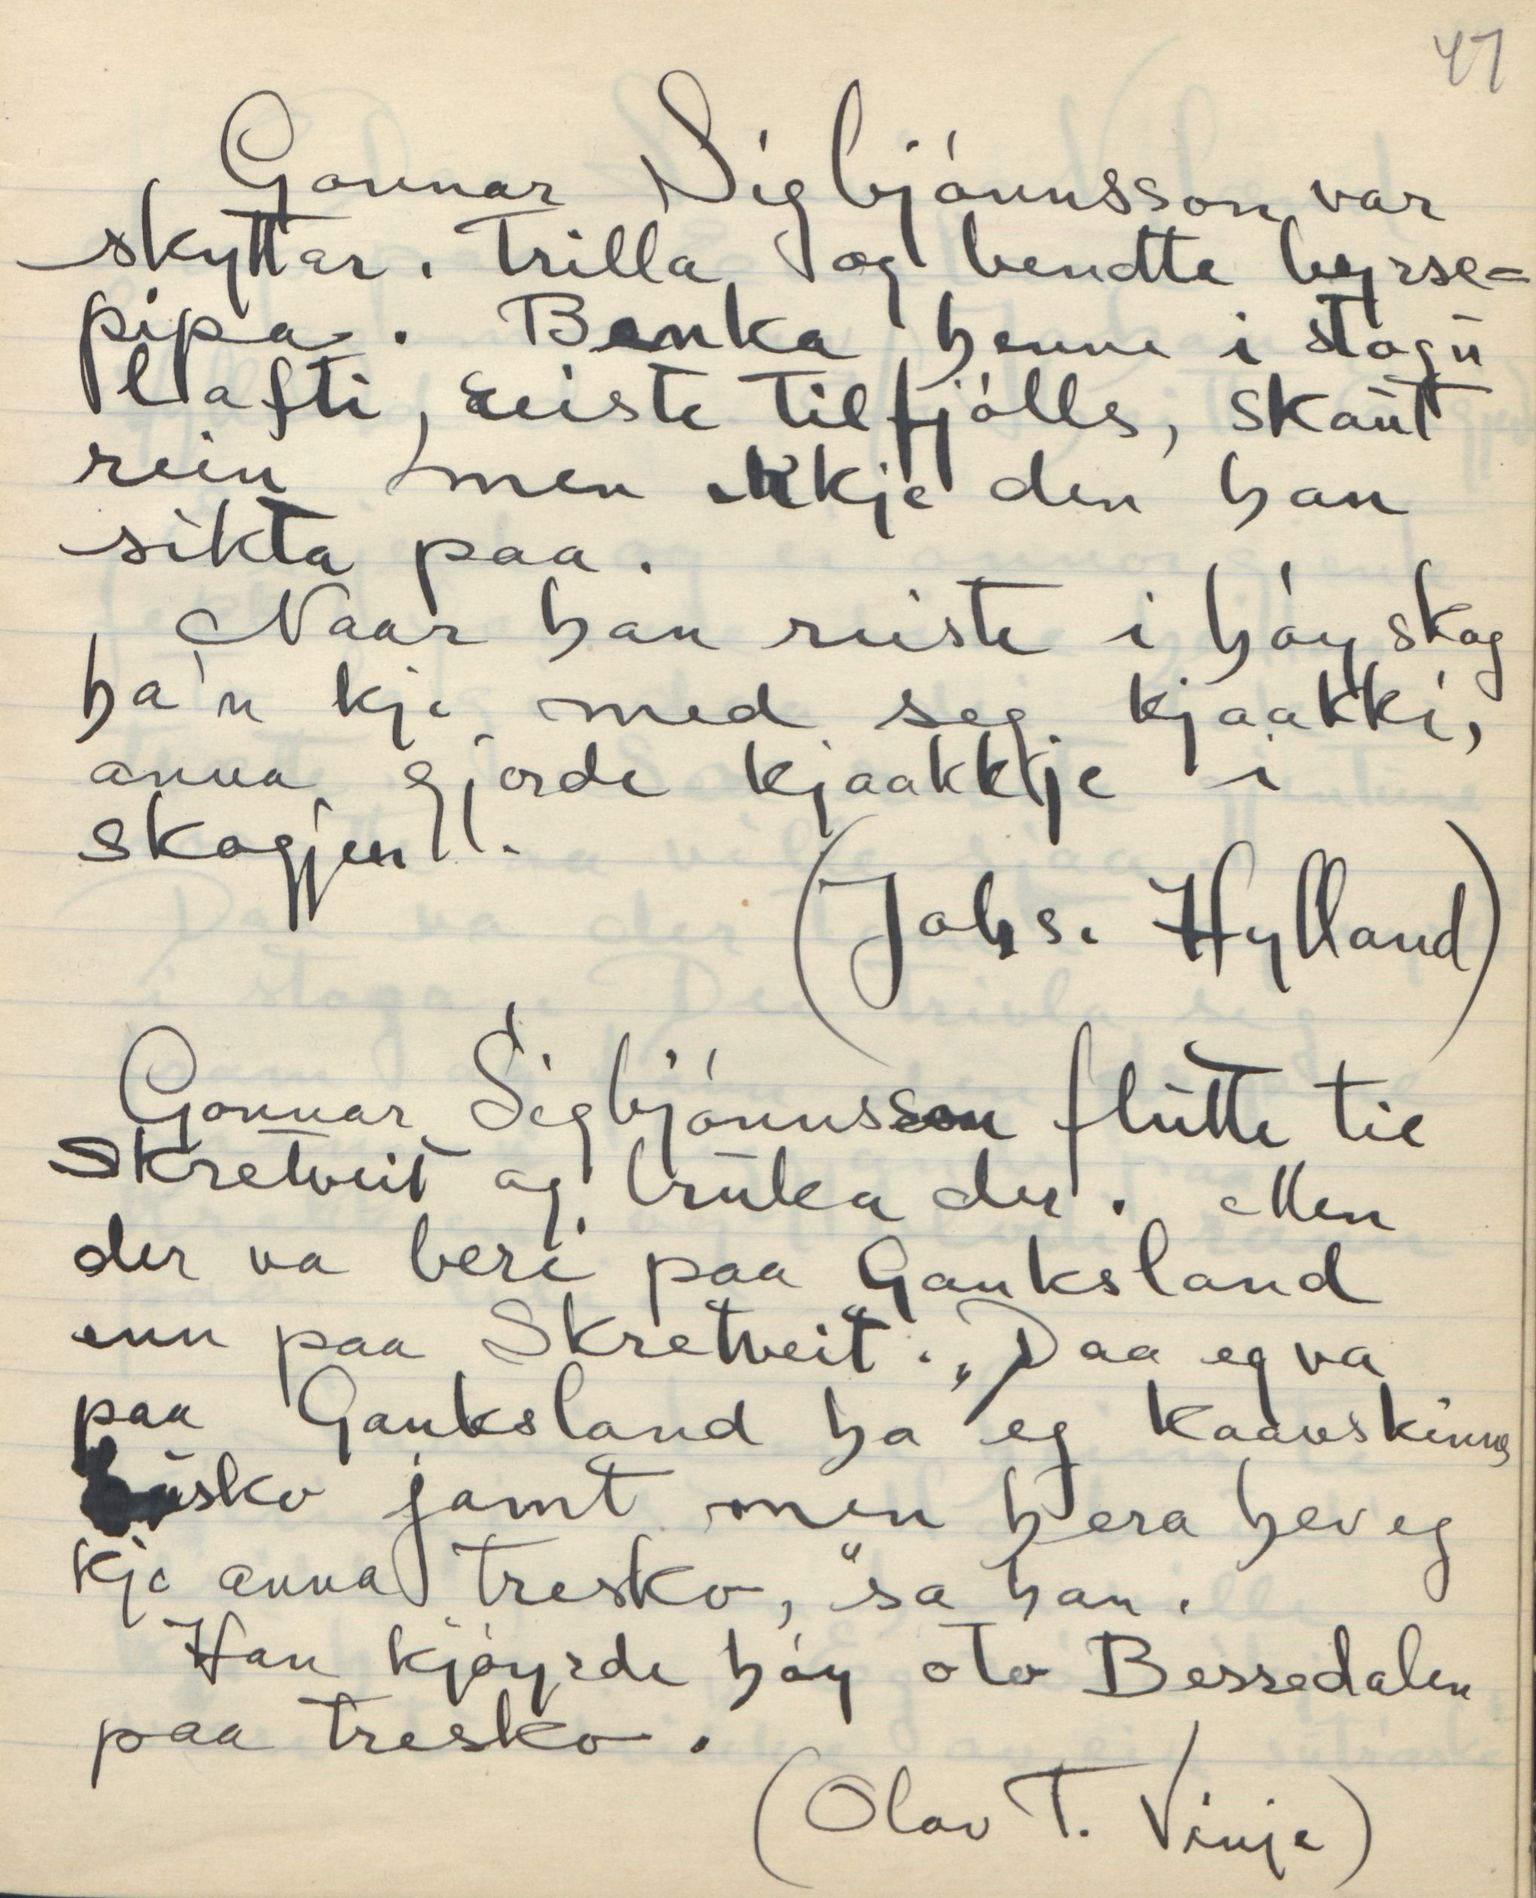 47
Gonnar Sigbjónnsson var
skyttar. Trilla og bendte byrse=
pipa. Benka henne i stogú
lafti, reiste tilfjólls, skaút
rein men ikkje den han
sikta paa.
Naar han reiste i hóyskog
ha'n kje med seg kjaakki,
anna gjorde kjaakktje i
skogjen.
(Johs. Hylland)
Gonnar Sigbjónnsson flútte til
Skretveit og brúka der. Men
der va beri paa Gauksland
enn paa Skretveit. „Daa eg va
paa Gauksland ha eg kaavskinns
úsko jamt men hera hev eg
kje anna tresko," sa han.
Han kjóyrde hóy oto Bessedalen
paa tresko.
(Olav T. Vinje)